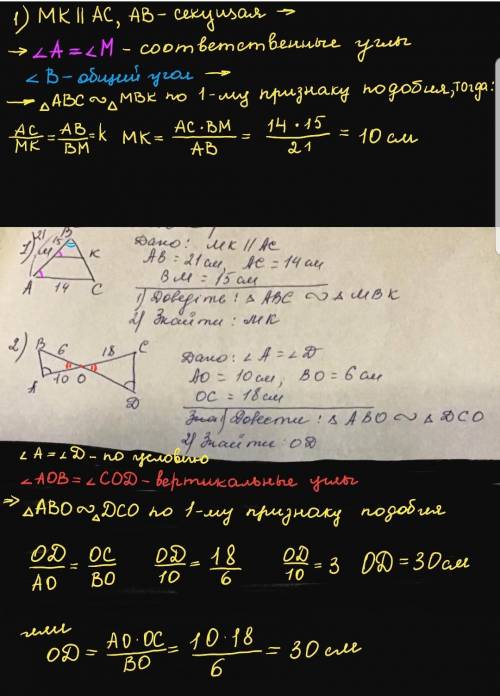 1) MK || AC, AB - секущая →
→ ∠A = ∠M - соответственные углы
∠B - общий угол →
→ △ABC ∾ △MBK по 1-му признаку подобия, тогда:
AC/MK = AB/BM = k MK = AC·BM/AB = 14·15/21 = 10 см
1) 21 15 B M K A 14 C
Дано: MK || AC
AB = 21 см, AC = 14 см
BM = 15 см
1) Доведіть: △ABC ∾ △MBK
2) Знайти: MK
2) B 6 18 C A 10 O D
Дано: ∠A = ∠D
AO = 10 см, BO = 6 см
OC = 18 см
1) Довести: △ABO ∾ △DCO
2) Знайти: OD
∠A = ∠D - по условию
∠AOB = ∠COD - вертикальные углы
⇒ △ABO ∾ △DCO по 1-му признаку подобия
OD/AO = OC/BO OD/10 = 18/6 OD/10 = 3 OD = 30 см
или
OD = AO·OC/BO = 10·18/6 = 30 см